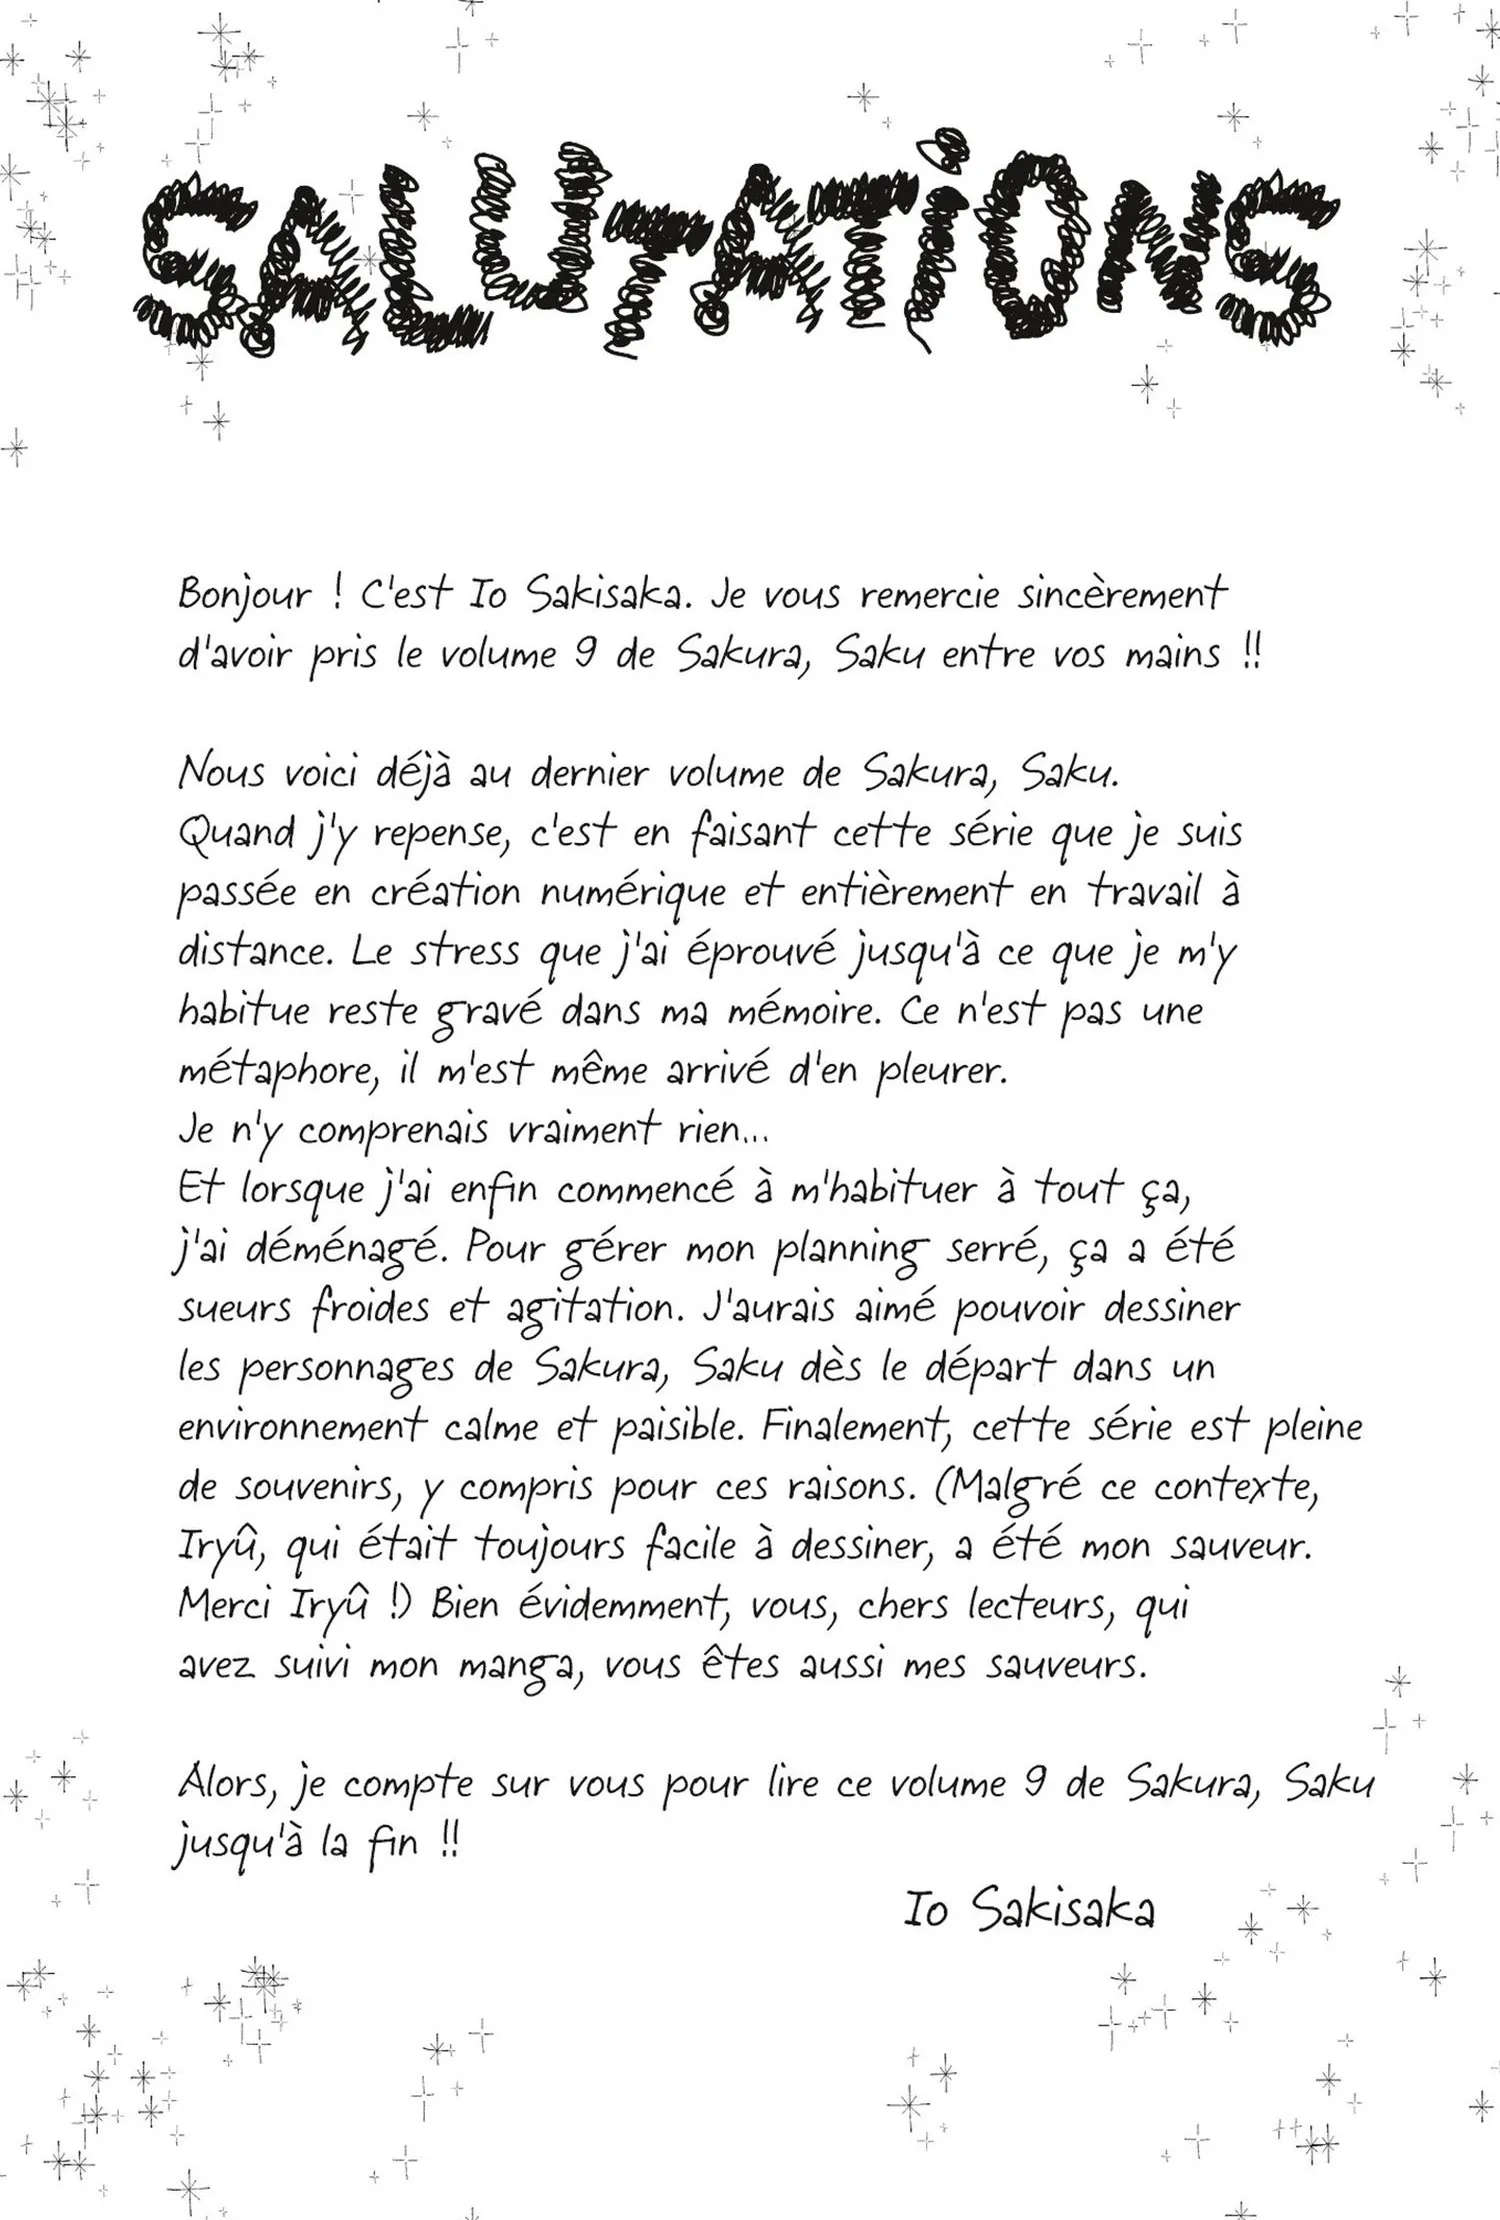 SALUTATiONS
Bonjour ! C'est Io Sakisaka. Je vous remercie sincèrement
d'avoir pris le volume 9 de Sakura, Saku entre vos mains !!
Nous voici déjà au dernier volume de Sakura, Saku.
Quand j'y repense, c'est en faisant cette série que je suis
passée en création numérique et entièrement en travail à
distance. Le stress que j'ai éprouvé jusqu'à ce que je m'y
habitue reste gravé dans ma mémoire. Ce n'est pas une
métaphore, il m'est même arrivé d'en pleurer.
Je n'y comprenais vraiment rien...
Et lorsque j'ai enfin commencé à m'habituer à tout ça,
j'ai déménagé. Pour gérer mon planning serré, ça a été
sueurs froides et agitation. J'aurais aimé pouvoir dessiner
les personnages de Sakura, Saku dès le départ dans un
environnement calme et paisible. Finalement, cette série est pleine
de souvenirs, y compris pour ces raisons. (Malgré ce contexte,
Iryû, qui était toujours facile à dessiner, a été mon sauveur.
Merci Iryû !) Bien évidemment, vous, chers lecteurs, qui
avez suivi mon manga, vous êtes aussi mes sauveurs.
Alors, je compte sur vous pour lire ce volume 9 de Sakura, Saku
jusqu'à la fin !!
Io Sakisaka